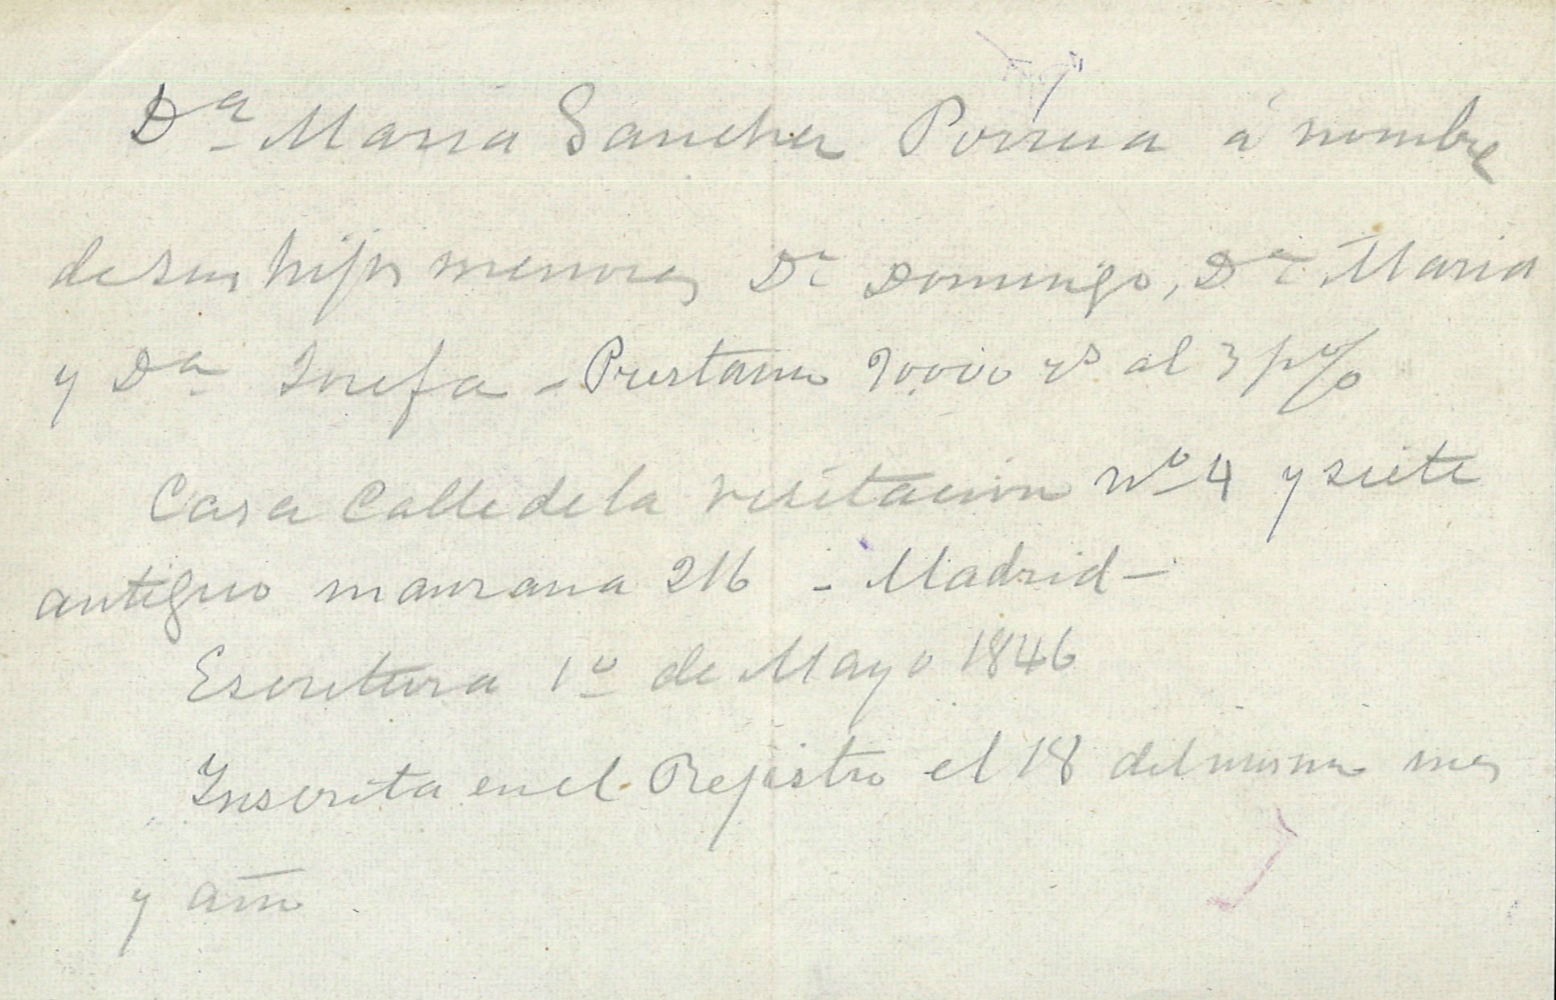 Dª Maria Sanchez Porrua á nombre
de sus hijos menores Dⁿ Domingo, Dª Maria
y Dª Josefa - Prestamo 90.000 rˢ al 3 p%
Casa Calle de la Visitacion Nº 4 y siete
antiguo manzana 216 - Madrid -
Escritura 1º de Mayo 1846
Inscrita en el Rejistro el 18 del mismo mes
y año